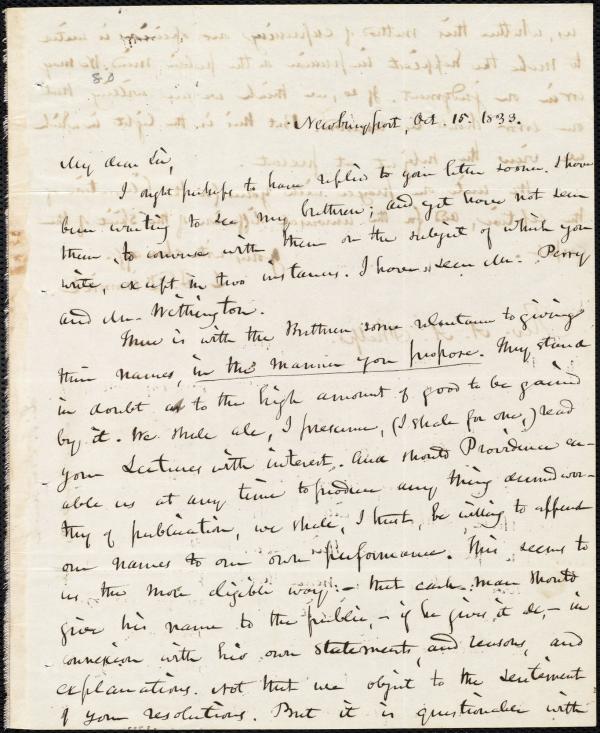 80
Newburyport, Oct. 15. 1833.
My dear Sir,
I ought perhaps to have replied to your letter sooner. I have
been waiting to see my brethren; and yet have not seen
them, to converse with them on the subject of which you
write, except in two instances. I have seen Mr. Perry
and Mr. Withington.
There is with the Brethren some reluctance to giving
their names, in the manner you propose. They stand
in doubt as to the high amount of good to be gained
by it. We shall all, I presume, (I shall for one,) read
your Lectures with interest. And should Providence en-
able us at any time to produce any thing deemed wor-
thy of publication, we shall, I trust, be willing to append
our names to our own performance. This seems to
us the more eligible way; – that each man should
give his name to the public, – if he gives it at all, – in
connexion with his own statements, and reasons, and
explanations. Not that we object to the sentiment
of your resolutions. But it is questionable with